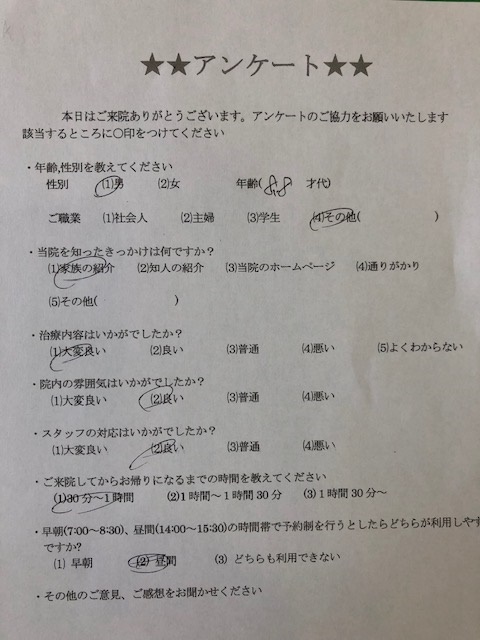 ★★アンケート★★
本日はご来院ありがとうございます。アンケートのご協力をお願いいたします
該当するところに〇印をつけてください
・年齢,性別を教えてください
性別 (1)男 (2)女 年齢( 才代)
ご職業 (1)社会人 (2)主婦 (3)学生 (4)その他( )
・当院を知ったきっかけは何ですか？
(1)家族の紹介 (2)知人の紹介 (3)当院のホームページ (4)通りがかり
(5)その他( )
・治療内容はいかがでしたか？
(1)大変良い (2)良い (3)普通 (4)悪い (5)よくわからない
・院内の雰囲気はいかがでしたか？
(1)大変良い (2)良い (3)普通 (4)悪い
・スタッフの対応はいかがでしたか？
(1)大変良い (2)良い (3)普通 (4)悪い
・ご来院してからお帰りになるまでの時間を教えてください
(1)30分～1時間 (2)1時間～1時間30分 (3)1時間30分～
・早朝(7:00～8:30)、昼間(14:00～15:30)の時間帯で予約制を行うとしたらどちらが利用しやす
ですか?
(1) 早朝 (2) 昼間 (3) どちらも利用できない
・その他のご意見、ご感想をお聞かせください